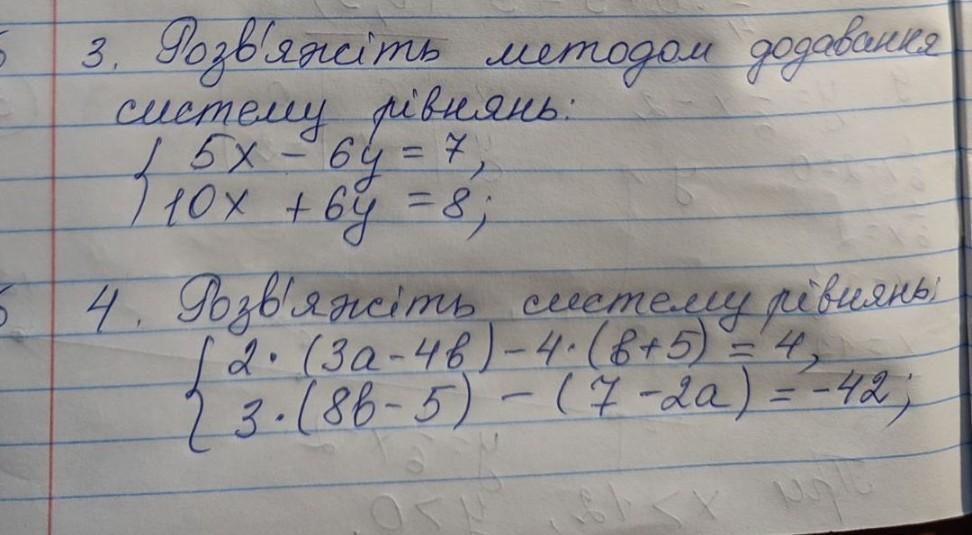 3. Розв'яжіть методом додавання
систему рівнянь:
{ 5x - 6y = 7,
10x + 6y = 8;
4. Розв'яжіть систему рівнянь:
{ 2·(3a-4b)-4·(b+5) = 4,
3·(8b-5) - (7-2a) = -42;